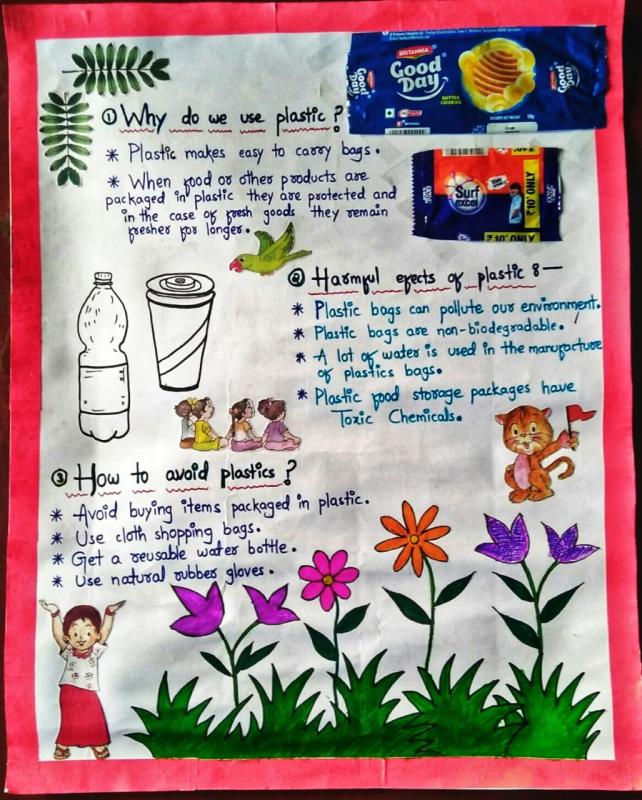 BRITANNIA
Good
Day
BUTTER
COOKIES
Good
Day
① Why do we use plastic?
* Plastic makes easy to carry bags.
* When food or other products are
packaged in plastic they are protected and
in the case of fresh goods they remain
fresher for longer.
Surf
excel
₹10 ONLY
② Harmful efects of plastic :—
* Plastic bags can pollute our environment.
* Plastic bags are non-biodegradable.
* A lot of water is used in the manufacture
of plastics bags.
* Plastic food storage packages have
Toxic Chemicals.
③ How to avoid plastics?
* Avoid buying items packaged in plastic.
* Use cloth shopping bags.
* Get a reusable water bottle.
* Use natural rubber gloves.